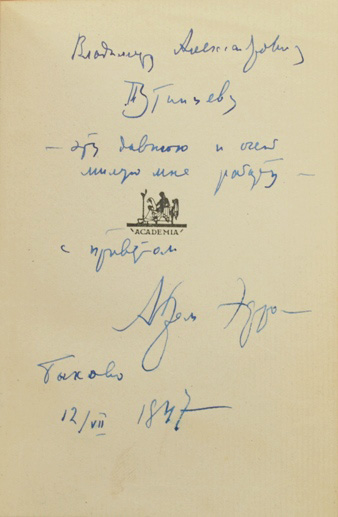 Владимиру Александровичу
— эту давнюю и очень
милую мне работу —
"ACADEMIA"
с приветом
Абрам Эфрос
Быково
12/VII 1947